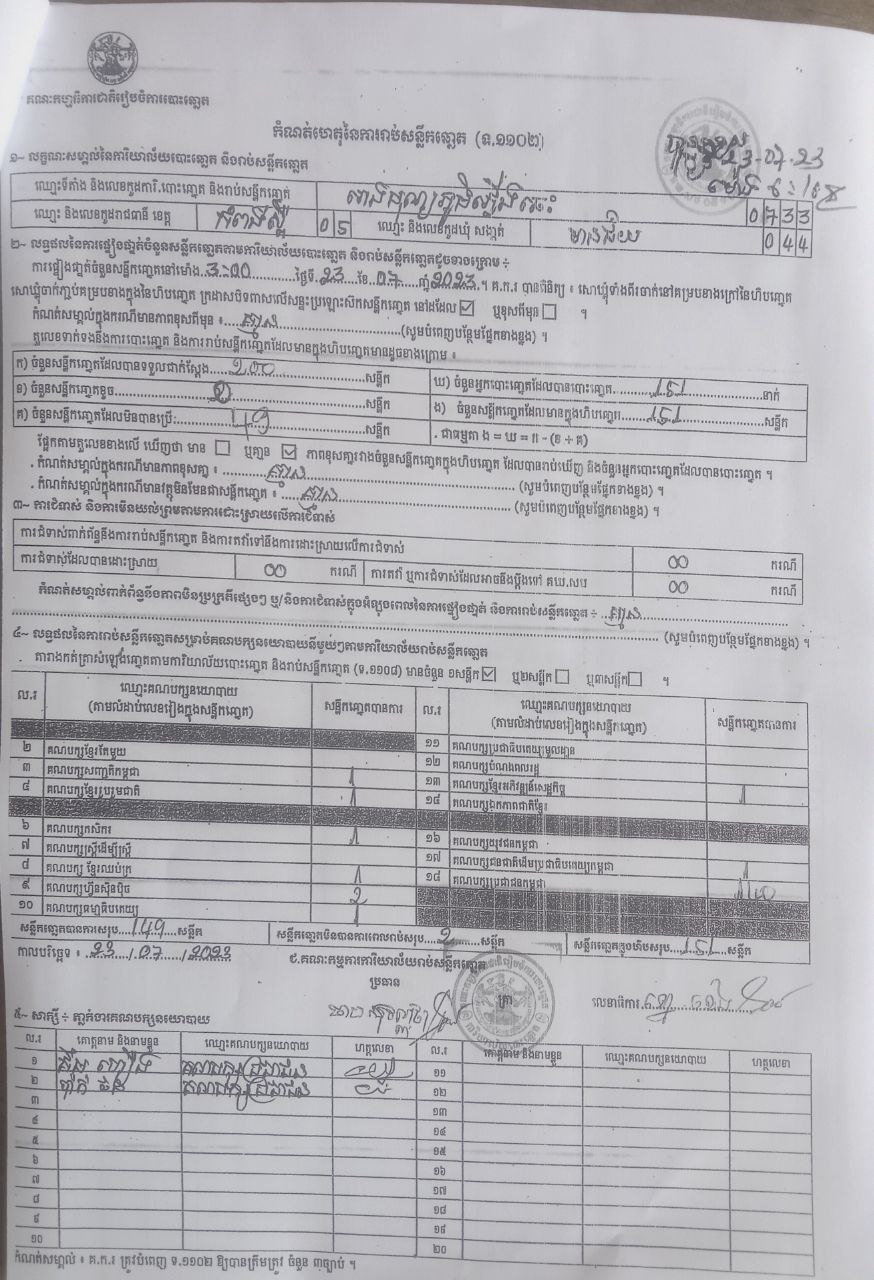 គណៈកម្មាធិការជាតិរៀបចំការបោះឆ្នោត
កំណត់ហេតុនៃការរាប់សន្លឹកឆ្នោត (ទ.១១០២)
23-07-23
១~ លក្ខណៈសម្គាល់នៃការិយាល័យបោះឆ្នោត និងរាប់សន្លឹកឆ្នោត
ឈ្មោះទីតាំង និងលេខកូដការិ.បោះឆ្នោត និងរាប់សន្លឹកឆ្នោត 0733
ឈ្មោះ និងលេខកូដរាជធានី ខេត្ត កំពង់ស្ពឺ 05 ឈ្មោះ និងលេខកូដឃុំ សង្កាត់ មានជ័យ 044
២~ លទ្ធផលនៃការផ្ទៀងផ្ទាត់ចំនួនសន្លឹកឆ្នោតតាមការិយាល័យបោះឆ្នោត និងរាប់សន្លឹកឆ្នោតដូចខាងក្រោម ÷
ការផ្ទៀងផ្ទាត់ចំនួនសន្លឹកឆ្នោតនៅម៉ោង 3:00 ថ្ងៃទី 23 ខែ 07 ឆ្នាំ 2023 ។ គ.ក.រ បានពិនិត្យ ៖ សោឃ្លុំទាំងពីរចាក់នៅគម្របខាងក្រៅនៃហិបឆ្នោត
សោឃ្លុំចាក់ភ្ជាប់គម្របខាងក្នុងនៃហិបឆ្នោត ក្រដាសបិទពាសលើសន្ទះប្រឡោះស៊កសន្លឹកឆ្នោត នៅដដែល ☑ ឬខុសពីមុន ☐ ។
កំណត់សម្គាល់ក្នុងករណីមានភាពខុសពីមុន ៖ គ្មាន (សូមបំពេញបន្ថែមផ្នែកខាងខ្នង) ។
តួលេខទាក់ទងនឹងការបោះឆ្នោត និងការរាប់សន្លឹកឆ្នោតដែលមានក្នុងហិបឆ្នោតមានដូចខាងក្រោម ៖
ក) ចំនួនសន្លឹកឆ្នោតដែលបានទទួលជាក់ស្តែង 200 សន្លឹក ឃ) ចំនួនអ្នកបោះឆ្នោតដែលបានបោះឆ្នោត 151 នាក់
ខ) ចំនួនសន្លឹកឆ្នោតខូច 0 សន្លឹក ង) ចំនួនសន្លឹកឆ្នោតដែលមានក្នុងហិបឆ្នោត 151 សន្លឹក
គ) ចំនួនសន្លឹកឆ្នោតដែលមិនបានប្រើ 49 សន្លឹក . ជាធម្មតា ង = ឃ = ក - (ខ + គ)
ផ្អែកតាមតួលេខខាងលើ ឃើញថា មាន ☐ ឬគ្មាន ☑ ភាពខុសគ្នារវាងចំនួនសន្លឹកឆ្នោតក្នុងហិបឆ្នោត ដែលបានរាប់ឃើញ និងចំនួនអ្នកបោះឆ្នោតដែលបានបោះឆ្នោត ។
. កំណត់សម្គាល់ក្នុងករណីមានភាពខុសគ្នា ៖ គ្មាន (សូមបំពេញបន្ថែមផ្នែកខាងខ្នង) ។
. កំណត់សម្គាល់ក្នុងករណីមានវត្ថុមិនមែនជាសន្លឹកឆ្នោត ៖ គ្មាន (សូមបំពេញបន្ថែមផ្នែកខាងខ្នង) ។
៣~ ការជំទាស់ និងការមិនយល់ព្រមតាមការដោះស្រាយលើការជំទាស់
ការជំទាស់ពាក់ព័ន្ធនឹងការរាប់សន្លឹកឆ្នោត និងការតវ៉ាទៅនឹងការដោះស្រាយលើការជំទាស់ 00 ករណី
ការជំទាស់ដែលបានដោះស្រាយ 00 ករណី ការតវ៉ា ឬការជំទាស់ដែលអាចនឹងប្តឹងទៅ គឃ.សប 00 ករណី
កំណត់សម្គាល់ពាក់ព័ន្ធនឹងភាពមិនប្រក្រតីផ្សេងៗ ឬ/និងការជំទាស់ក្នុងអំឡុងពេលនៃការផ្ទៀងផ្ទាត់ និងការរាប់សន្លឹកឆ្នោត ÷ គ្មាន
(សូមបំពេញបន្ថែមផ្នែកខាងខ្នង) ។
៤~ លទ្ធផលនៃការរាប់សន្លឹកឆ្នោតសម្រាប់គណបក្សនយោបាយនីមួយៗតាមការិយាល័យរាប់សន្លឹកឆ្នោត
តារាងកត់ត្រាសំឡេងឆ្នោតតាមការិយាល័យបោះឆ្នោត និងរាប់សន្លឹកឆ្នោត (ទ.១១០៨) មានចំនួន ១សន្លឹក ☑ ឬ២សន្លឹក ☐ ឬ៣សន្លឹក ☐ ។
ល.រ ឈ្មោះគណបក្សនយោបាយ (តាមលំដាប់លេខរៀងក្នុងសន្លឹកឆ្នោត) សន្លឹកឆ្នោតបានការ ល.រ ឈ្មោះគណបក្សនយោបាយ (តាមលំដាប់លេខរៀងក្នុងសន្លឹកឆ្នោត) សន្លឹកឆ្នោតបានការ
១១ គណបក្សប្រជាធិបតេយ្យមូលដ្ឋាន
២ គណបក្សខ្មែរតែមួយ ១២ គណបក្សបំណងពលរដ្ឋ
៣ គណបក្សសញ្ជាតិកម្ពុជា 1 ១៣ គណបក្សខ្មែរអភិវឌ្ឍន៍សេដ្ឋកិច្ច
៤ គណបក្សខ្មែររួបរួមជាតិ 1 ១៤ គណបក្សឯកភាពជាតិខ្មែរ 1
៦ គណបក្សកសិករ 1 ១៦ គណបក្សយុវជនកម្ពុជា
៧ គណបក្សស្ត្រីដើម្បីស្ត្រី ១៧ គណបក្សជនជាតិដើមប្រជាធិបតេយ្យកម្ពុជា 1
៨ គណបក្ស ខ្មែរឈប់ក្រ 1 ១៨ គណបក្សប្រជាជនកម្ពុជា 140
៩ គណបក្សហ៊្វុនស៊ិនប៉ិច 2
១០ គណបក្សធម្មាធិបតេយ្យ 1
សន្លឹកឆ្នោតបានការសរុប 149 សន្លឹក សន្លឹកឆ្នោតមិនបានការពេលរាប់សរុប 2 សន្លឹក សន្លឹកឆ្នោតក្នុងហិបសរុប 151 សន្លឹក
កាលបរិច្ឆេទ ៖ 23 / 07 / 2023 ជ.គណៈកម្មការការិយាល័យរាប់សន្លឹកឆ្នោត
ប្រធាន ត្រា លេខាធិការ
៥~ សាក្សី ÷ ភ្នាក់ងារគណបក្សនយោបាយ
ល.រ គោត្តនាម និងនាមខ្លួន ឈ្មោះគណបក្សនយោបាយ ហត្ថលេខា ល.រ គោត្តនាម និងនាមខ្លួន ឈ្មោះគណបក្សនយោបាយ ហត្ថលេខា
១ គណបក្សប្រជាជន ១១
២ គណបក្សប្រជាជន ១២
៣ ១៣
៤ ១៤
៥ ១៥
៦ ១៦
៧ ១៧
៨ ១៨
៩ ១៩
១០ ២០
កំណត់សម្គាល់ ៖ គ.ក.រ ត្រូវបំពេញ ទ.១១០២ ឱ្យបានត្រឹមត្រូវ ចំនួន ៣ច្បាប់ ។